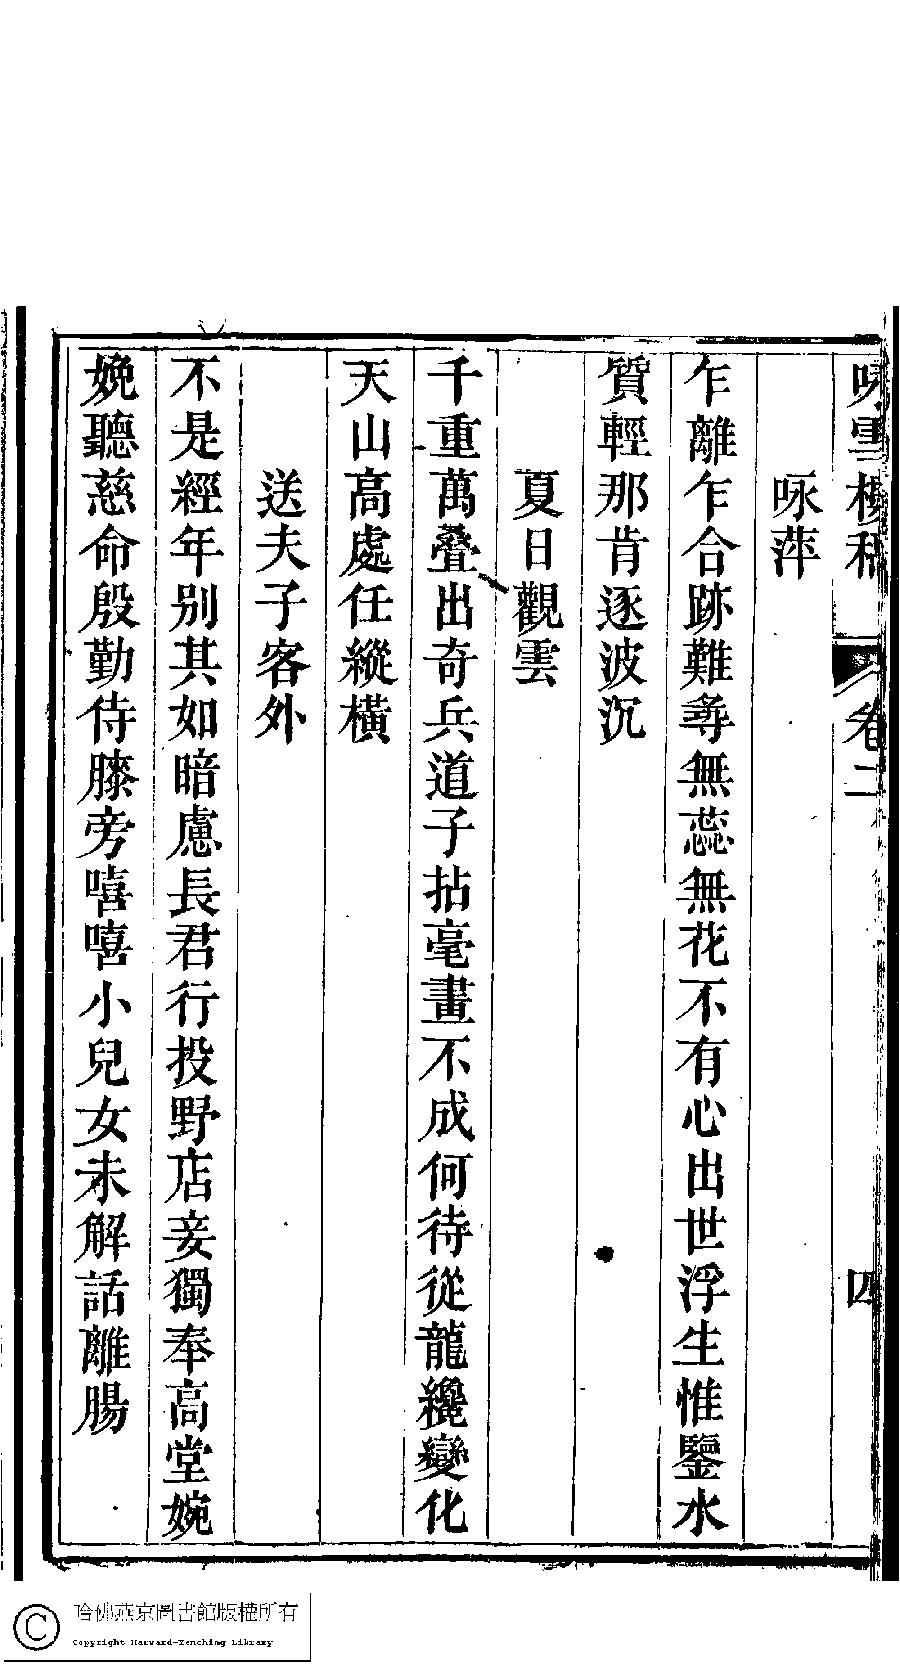 咏雪樓稿 卷二 四
咏萍
乍離乍合跡難尋無蕊無花不有心出世浮生惟鑒水
質輕那肯逐波沉
夏日觀雲
千重萬疊出奇兵道子拈毫畫不成何待從龍纔變化
天山高處任縱橫
送夫子客外
不是經年别其如暗慮長君行投野店妾獨奉高堂婉
娩聽慈命殷勤侍膝旁嘻嘻小兒女未解話離腸
哈佛燕京圖書館版權所有
Copyright Harvard-Yenching Library